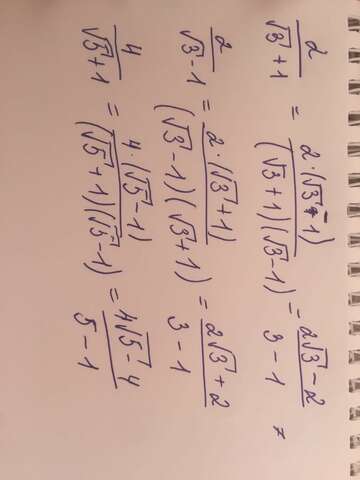 2/(√3+1) = 2·(√3-1)/((√3+1)(√3-1)) = (2√3-2)/(3-1) =
2/(√3-1) = 2·(√3+1)/((√3-1)(√3+1)) = (2√3+2)/(3-1)
4/(√5+1) = 4·(√5-1)/((√5+1)(√5-1)) = (4√5-4)/(5-1)